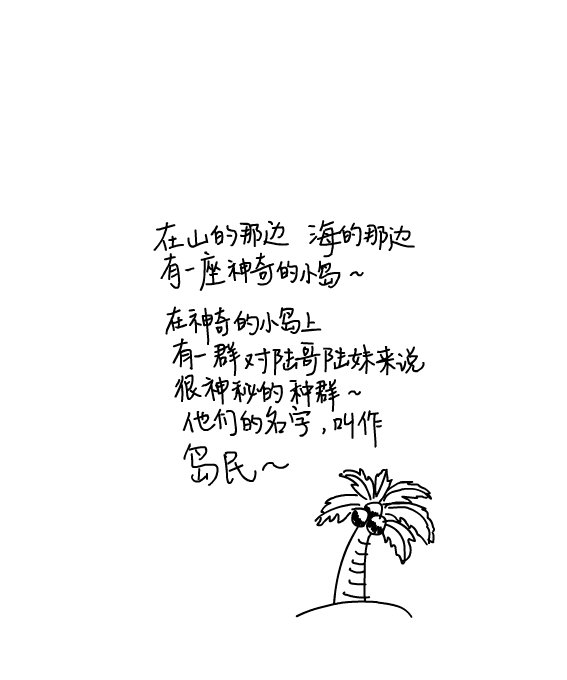 在山的那边 海的那边
有一座神奇的小岛~
在神奇的小岛上
有一群对陆哥陆妹来说
很神秘的种群~
他们的名字,叫作
岛民~